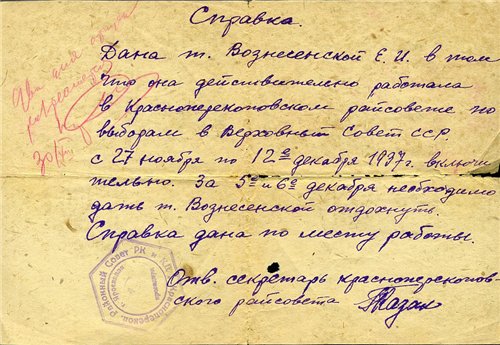 Справка.
Дана т. Вознесенской Е. И. в том
что она действительно работала
в Красноперекоповском райсовете по
выборам в Верховный Совет СССР
с 27 ноября по 12е декабря 1937г. включи
тельно. За 5е и 6е декабря необходимо
дать т. Вознесенской отдохнуть.
Справка дана по месту работы.
Отв. секретарь Красноперекопов-
ского райсовета
Два дня
30/XII
Районный Совет РК и